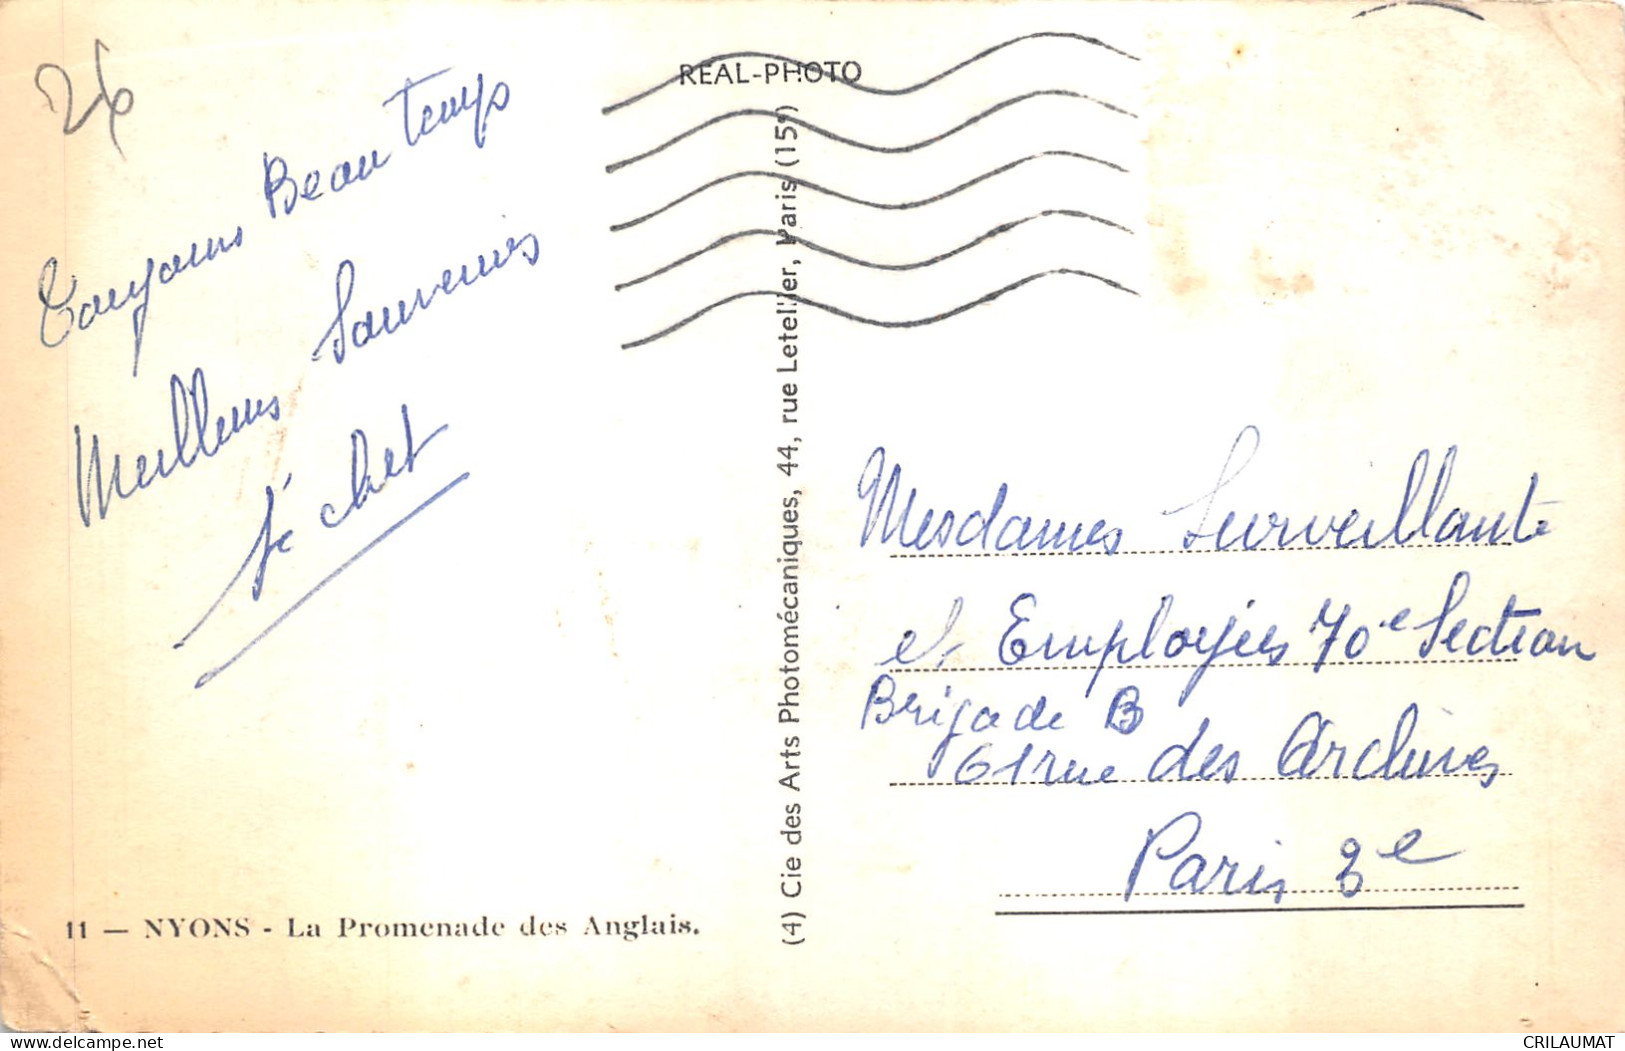 26
REAL-PHOTO
Toujours Beau temps
Meilleurs Souvenirs
(4) Cie des Arts Photomécaniques, 44, rue Letellier, Paris (15e)
Mesdames Surveillante
et Employées 70e Section
Brigade B
61 rue des Archives
Paris 3e
11 — NYONS - La Promenade des Anglais.
www.delcampe.net
CRILAUMAT